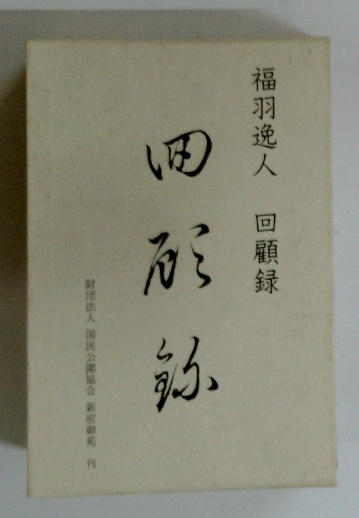 福羽逸人 回顧録
回顧録
財団法人 国民公園協会 新宿御苑 刊